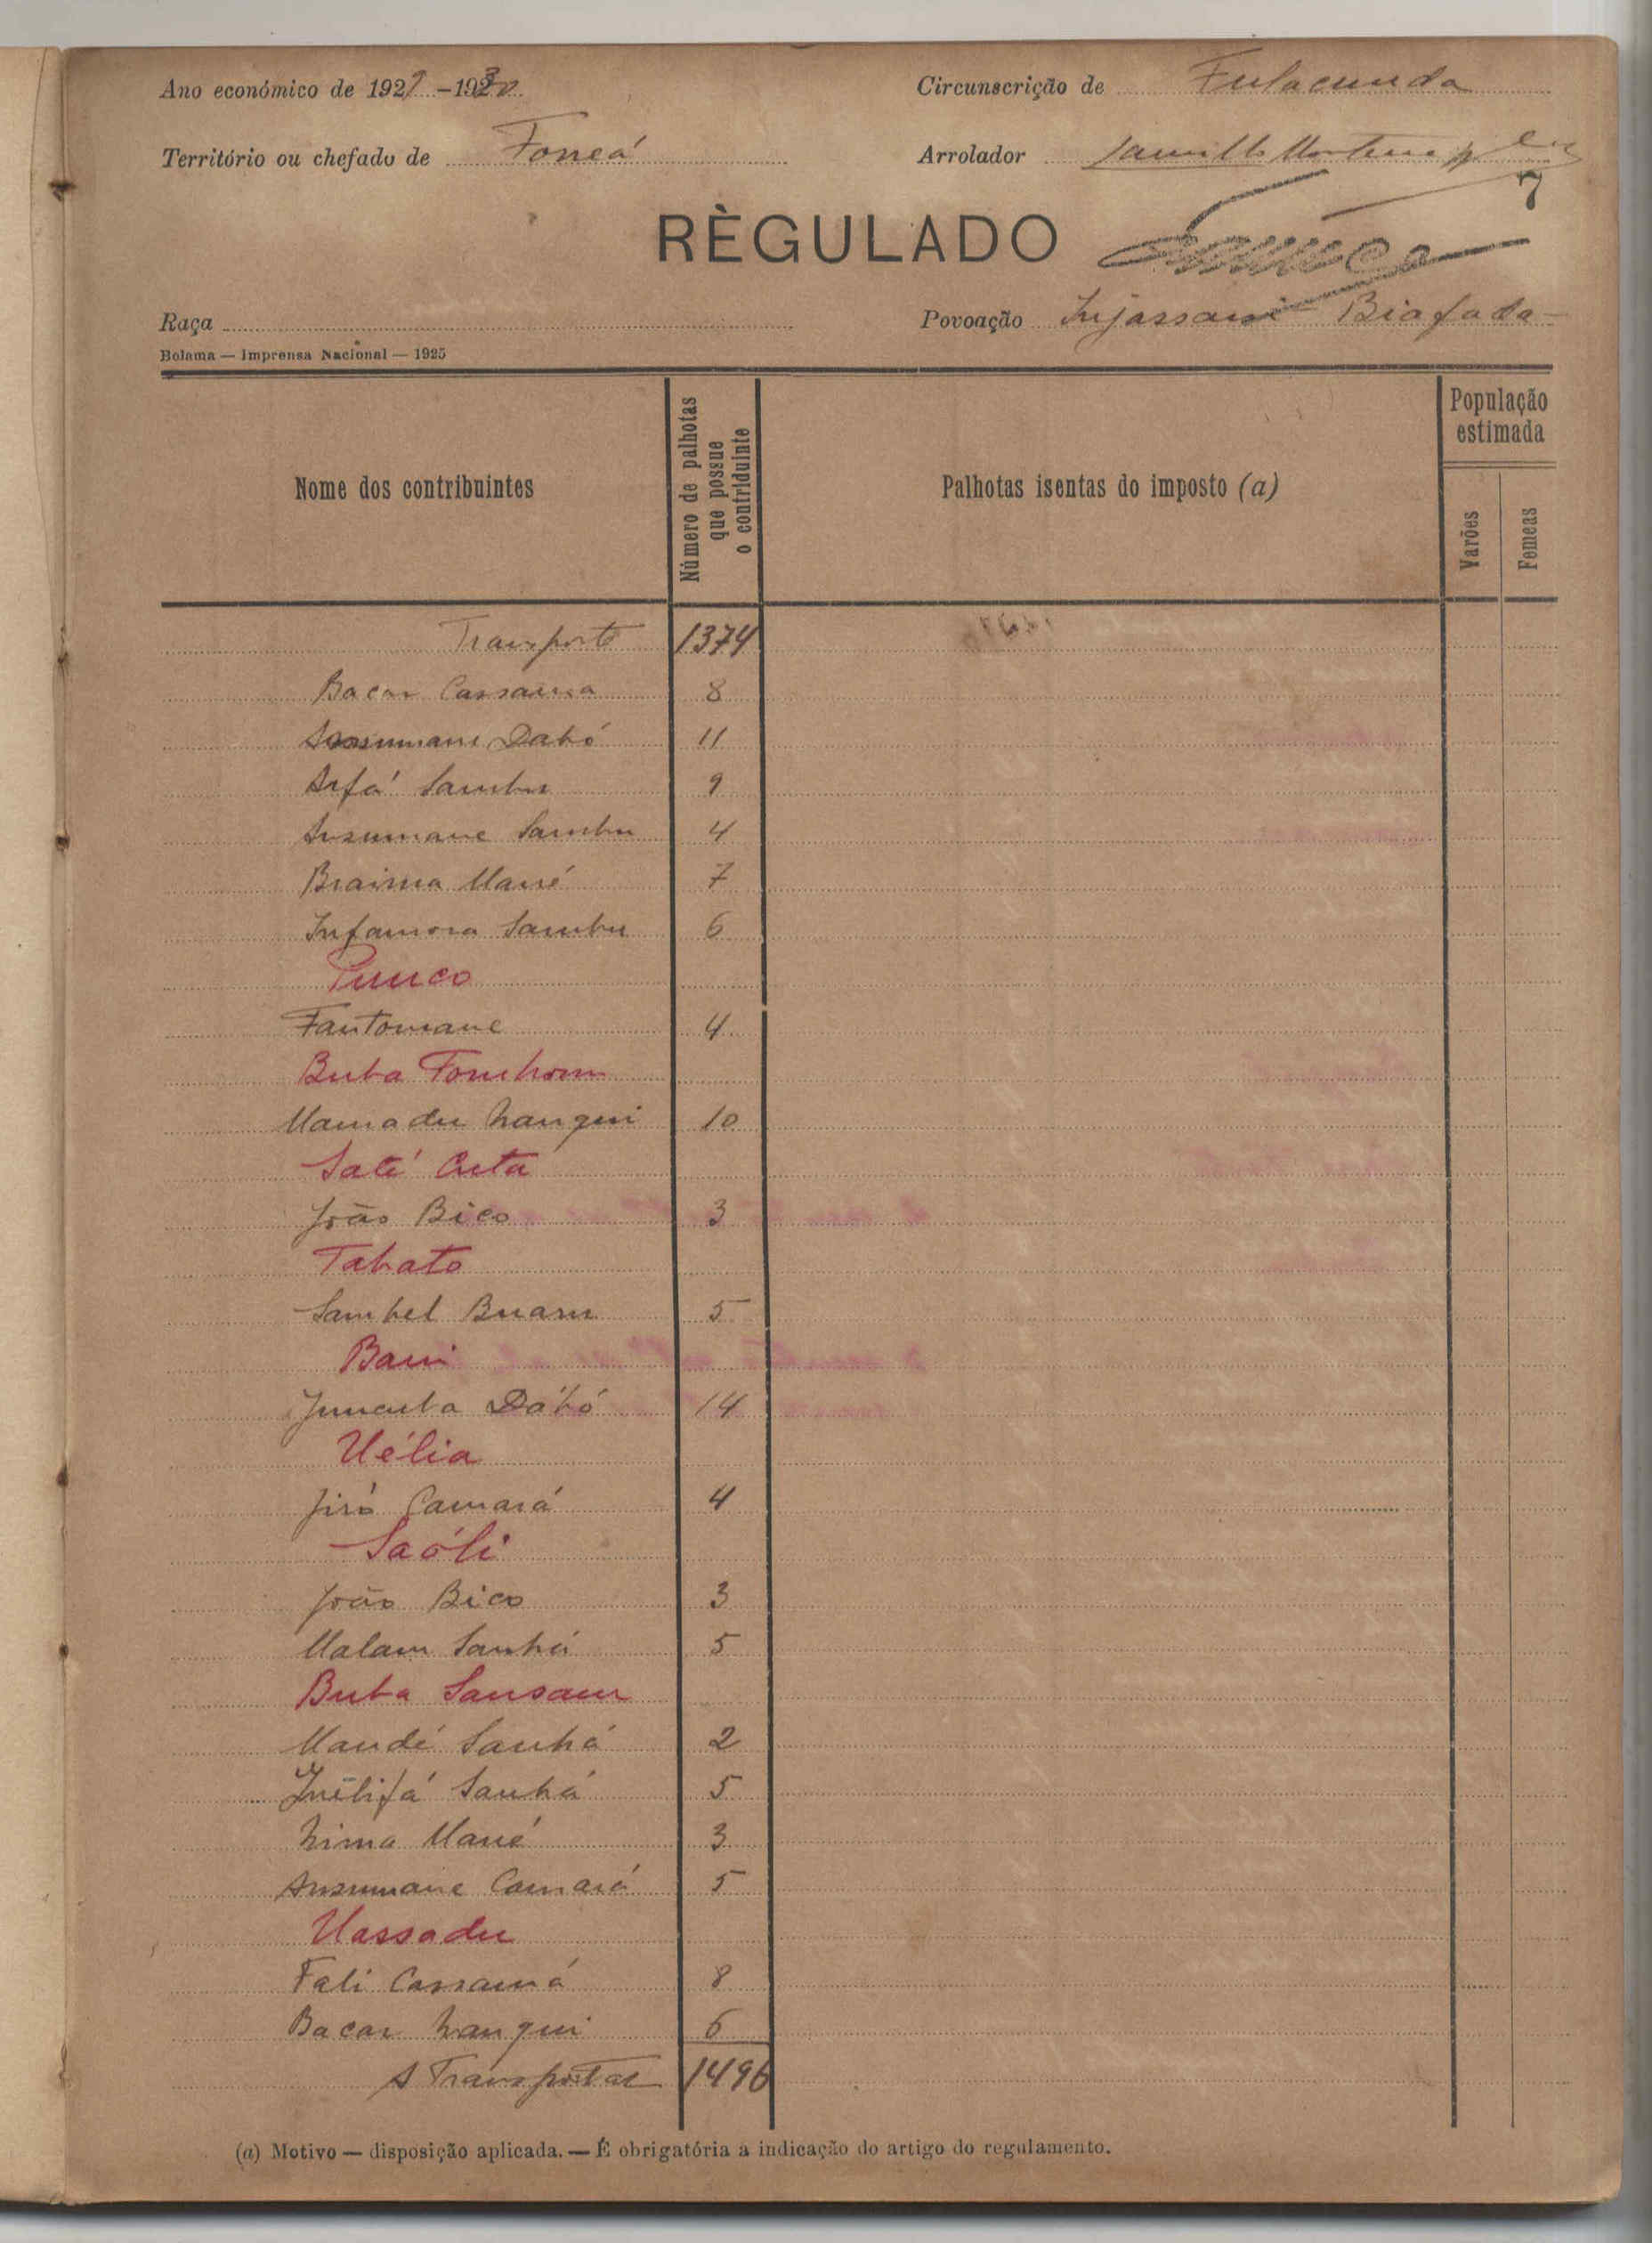 Ano económico de 1929-1930
Circunscrição de Fulacunda
Território ou chefado de Foneá
Arrolador
7
RÈGULADO
Raça
Povoação Injassani Biafada
Bolama — Imprensa Nacional — 1925
Nome dos contribuintes
Número de palhotas que possue o contriduinte
Palhotas isentas do imposto (a)
População estimada
Varões
Femeas
Transporte 1374
Bacar Cassama 8
Ansumane Dabó 11
Arfá Sambu 9
Ansumane Sambu 4
Braima Mané 7
Infamora Sambu 6
Fantomane 4
Buba Tombom
Mamadu Nanqui 10
Saté Cuta
João Bico 3
Tabato
Sambel Buaru 5
Bani
Juncuba Dábó 14
Uélia
Jiró Camará 4
Saóli
João Bico 3
Malam Sanhá 5
Buba Sansam
Mandé Sanhá 2
Sanhá 5
Nima Mané 3
Ansumane Camará 5
Uassadu
Fali Cassamá 8
Bacar Nanqui 6
A Transportar 1496
(a) Motivo — disposição aplicada. — É obrigatória a indicação do artigo do regulamento.